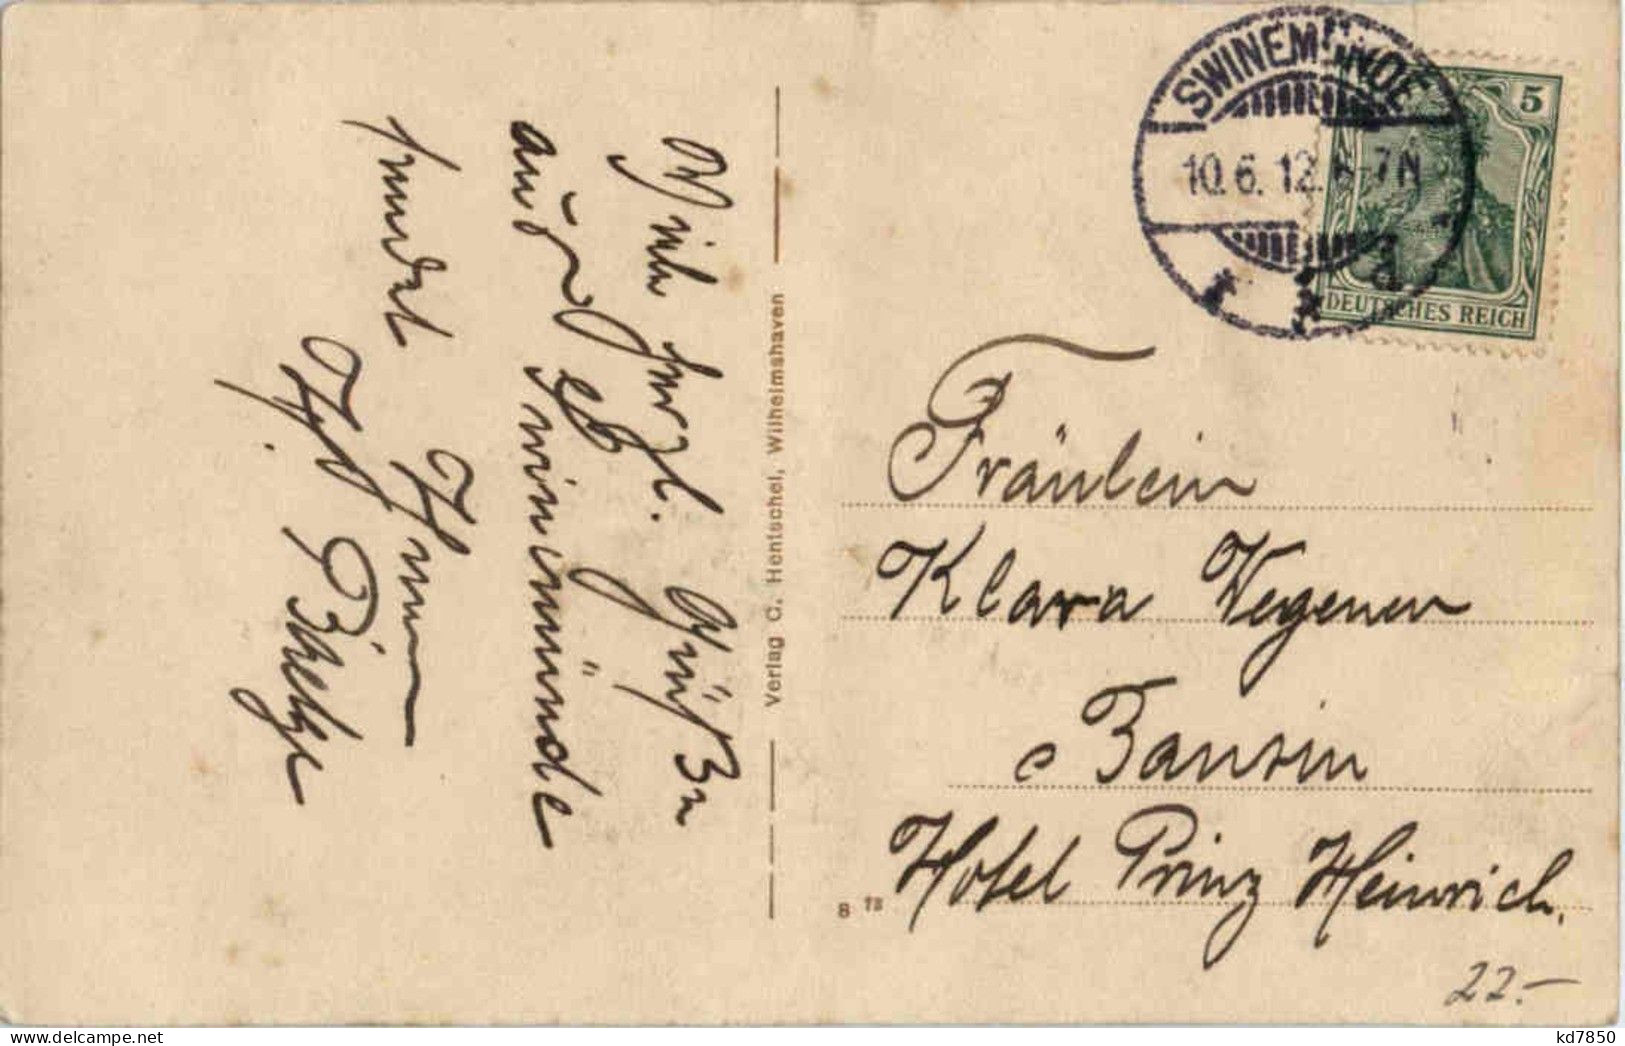 Viele herzl. Grüße
aus Swinemünde
sendet Ihnen
SWINEMÜNDE
10.6.12. 6-7N
d
5
DEUTSCHES REICH
Fräulein
Klara Wegener
Bansin
Hotel Prinz Heinrich.
Verlag C. Hentschel, Wilhelmshaven
8 78
22.-
kd7850